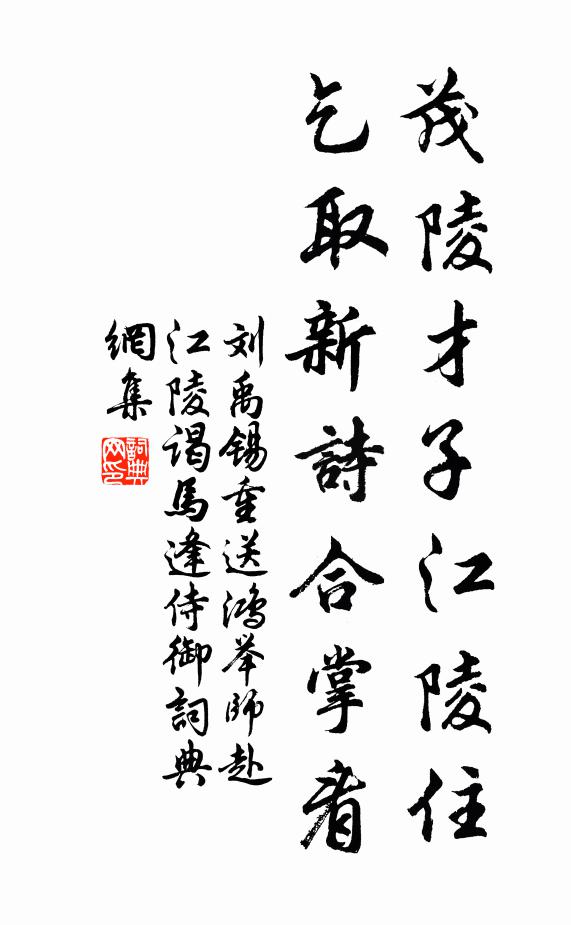 茂陵才子江陵住
乞取新詩合掌看
刘禹锡重送鴻举師赴
江陵谒馬逢侍御詞典
網集
詞典網印